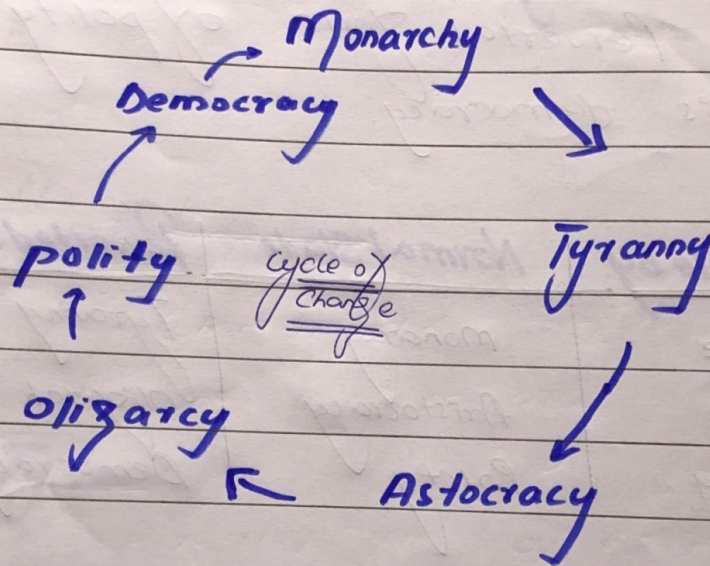 Monarchy
Democracy
Tyranny
polity
Cycle of
Change
Oligarcy
Astocracy